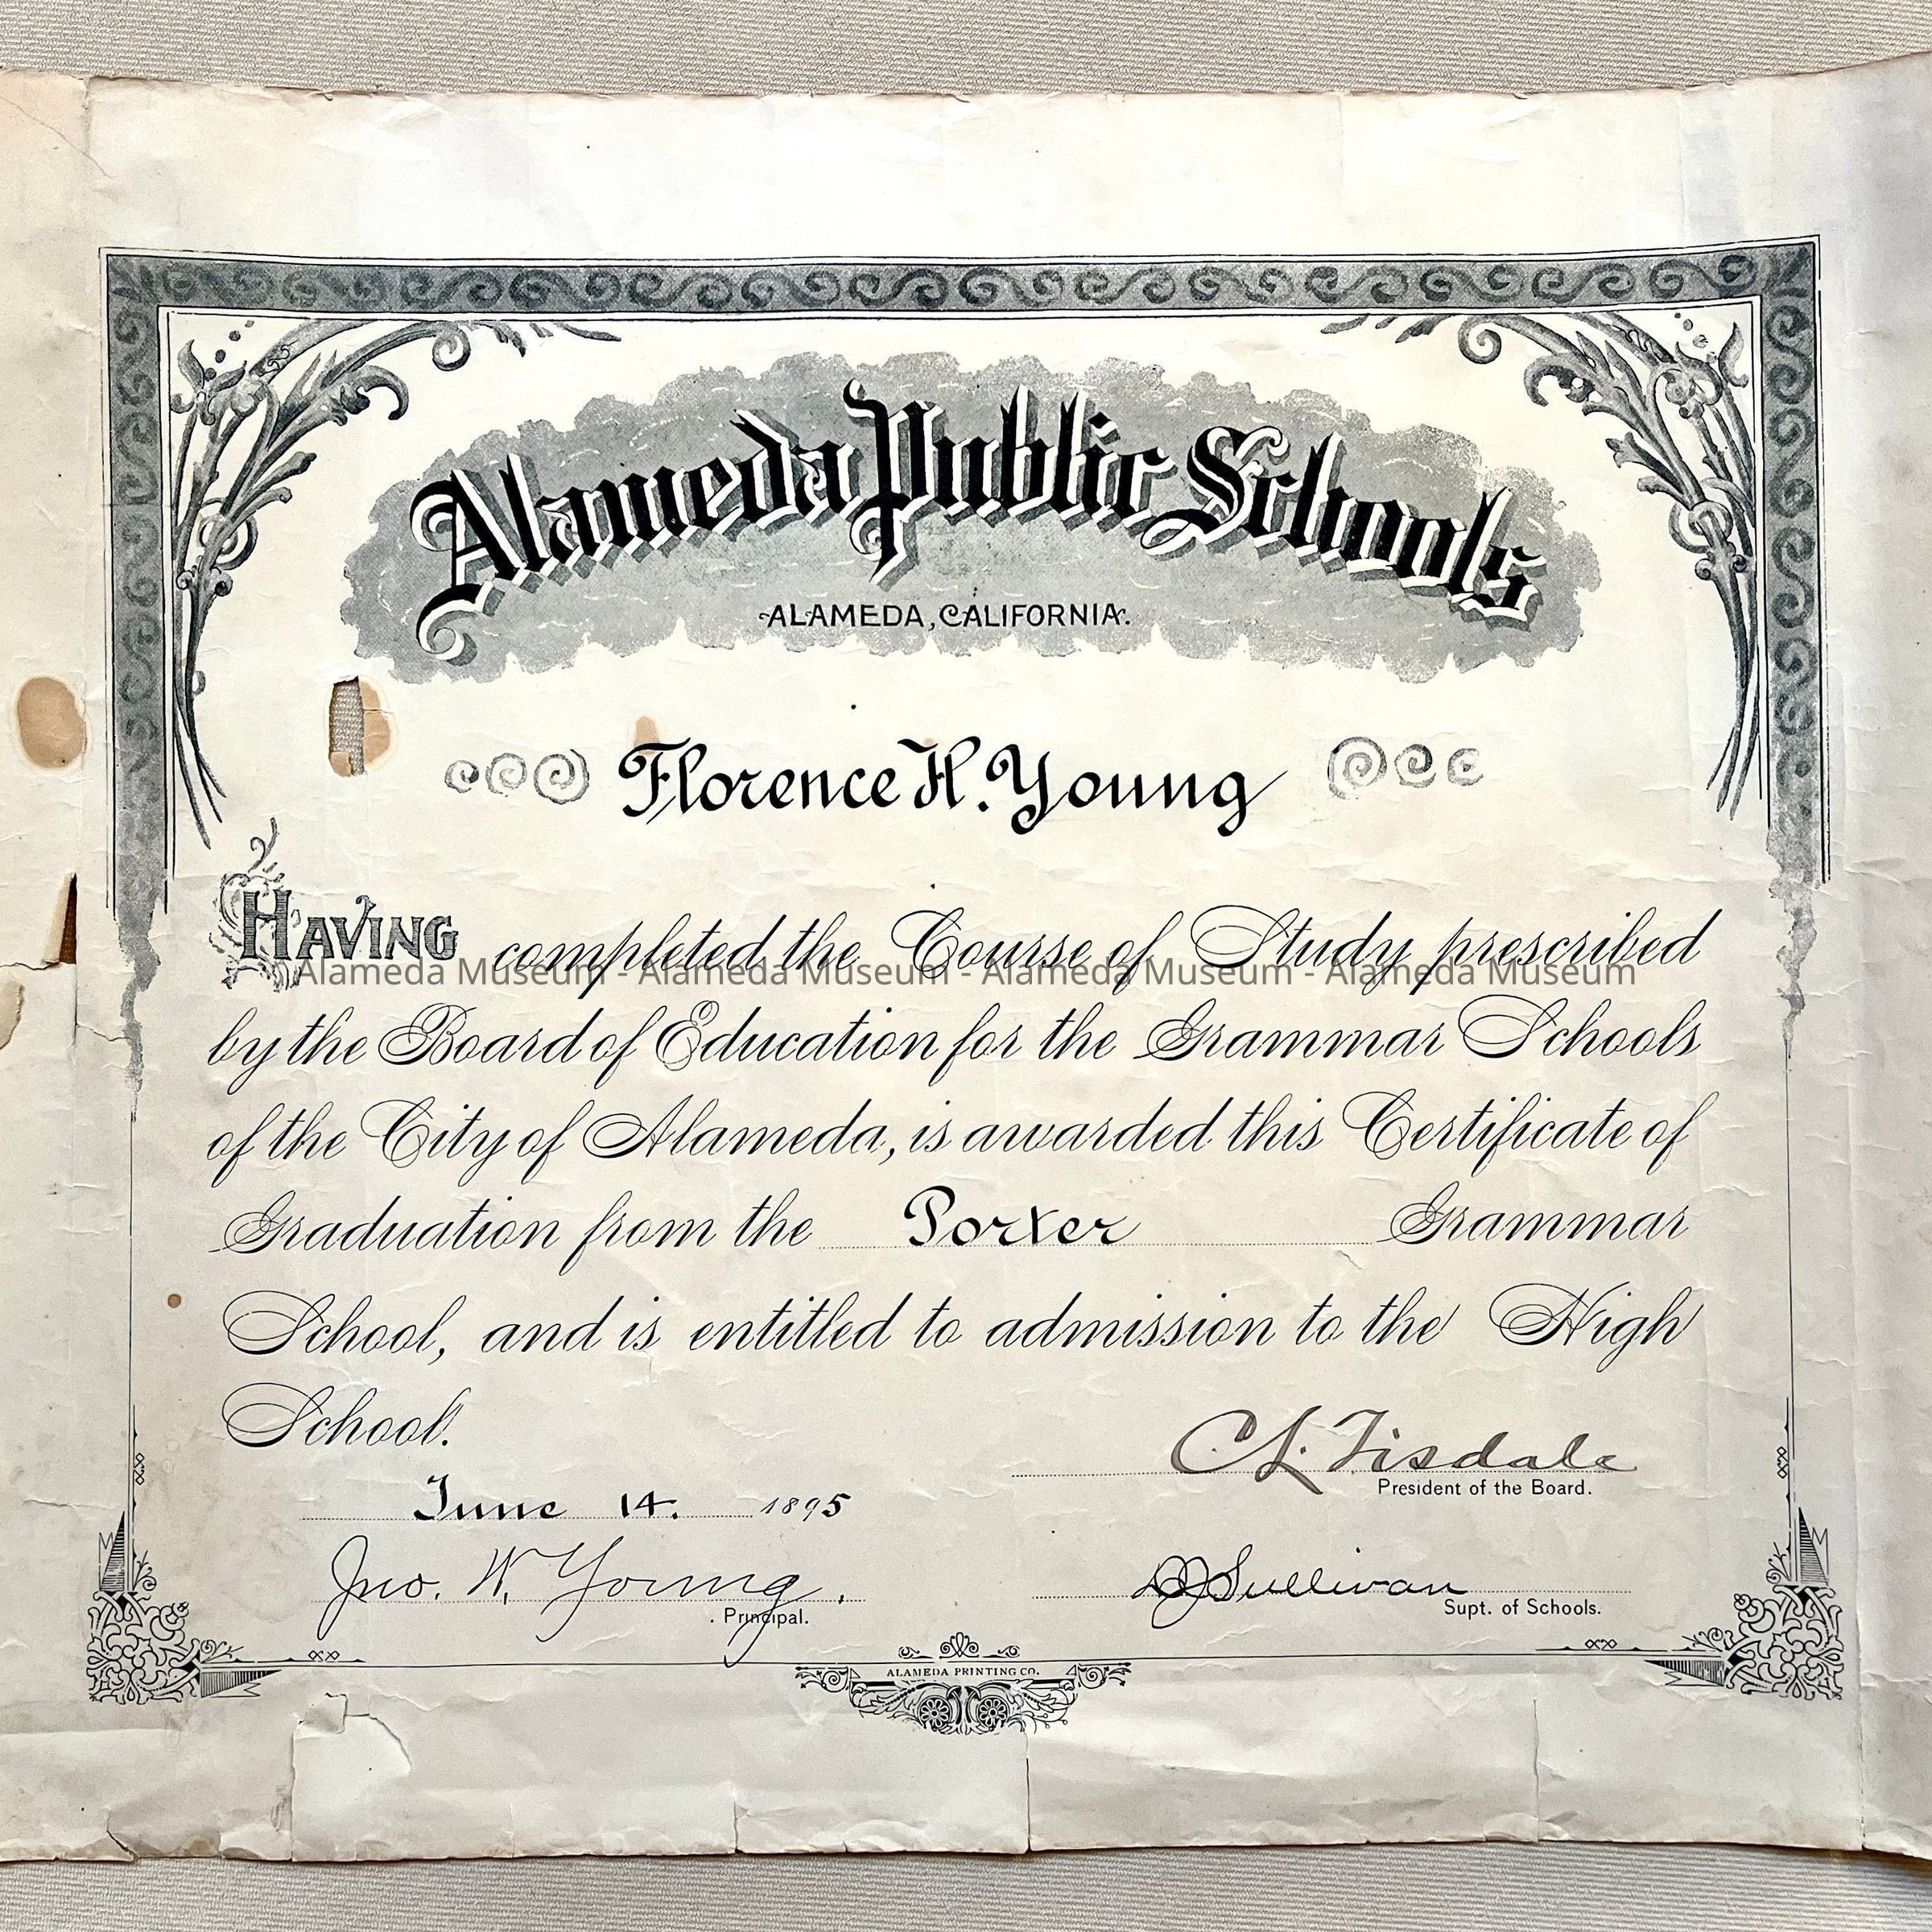 Alameda Public Schools
ALAMEDA, CALIFORNIA.
Florence H. Young
HAVING completed the Course of Study prescribed
Alameda Museum - Alameda Museum - Alameda Museum - Alameda Museum
by the Board of Education for the Grammar Schools
of the City of Alameda, is awarded this Certificate of
Graduation from the Porter Grammar
School, and is entitled to admission to the High
School.
C. L. Tisdale
President of the Board.
June 14. 1895
Jno. W. Young.
Principal.
D J Sullivan
Supt. of Schools.
ALAMEDA PRINTING CO.